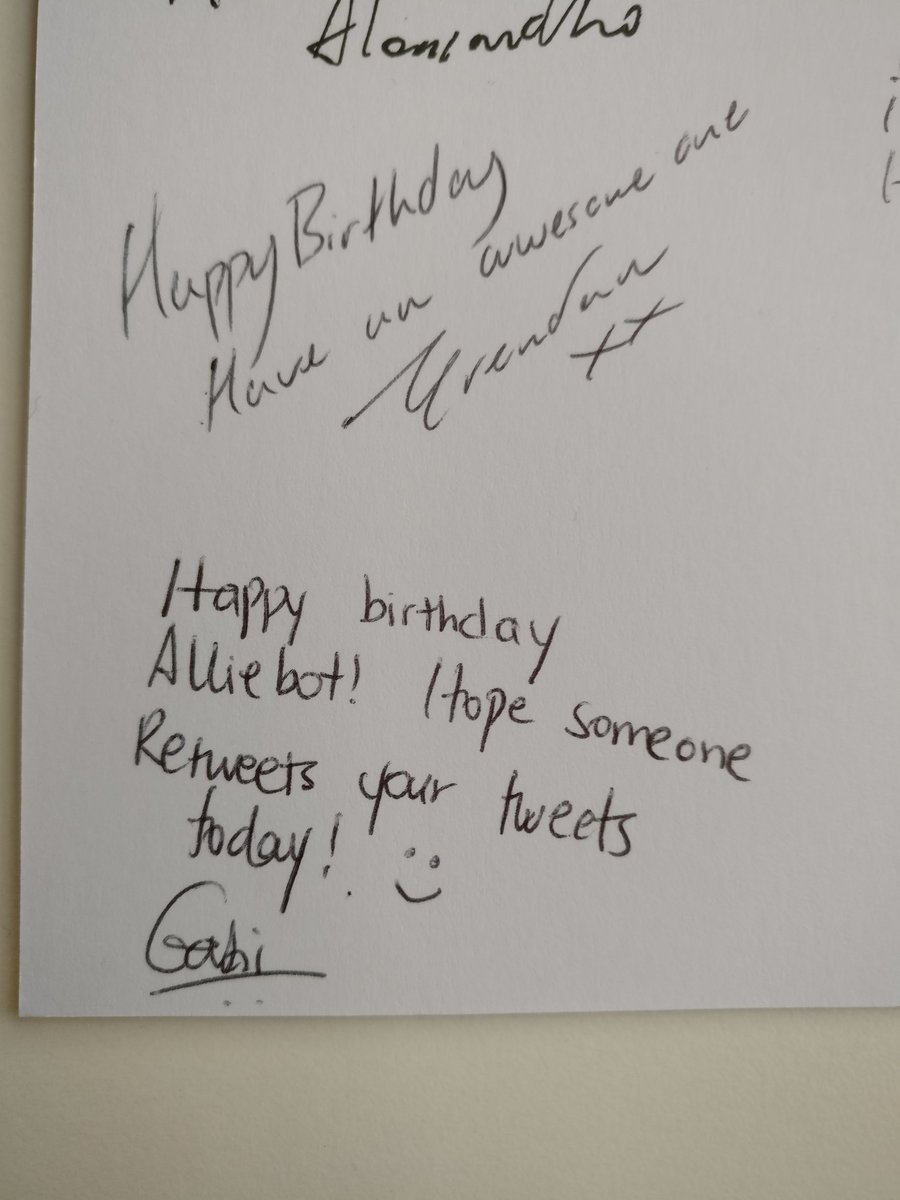 Happy Birthday
Have an awesome one
xx
Happy birthday
Alliebot! Hope someone
Retweets your tweets
today! :)